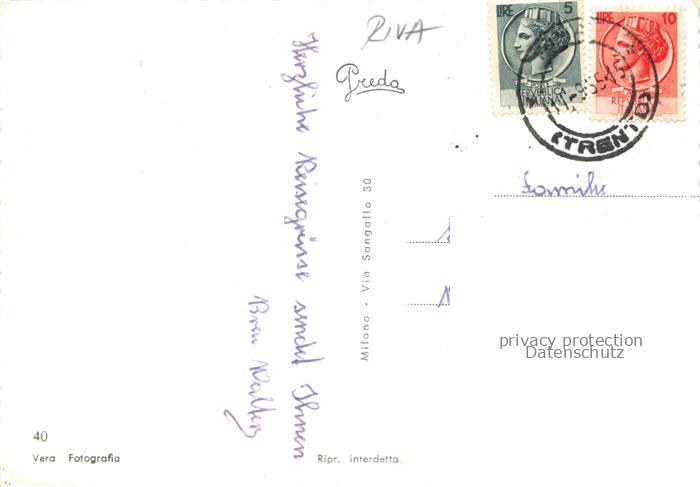 RIVA
Preda
LIRE 5
REPVBBLICA
ITALIANA
LIRE 10
(TRENTO)
Herzliche Reisegrüsse sendet Ihnen
Familie
Milano - Via Sangallo 30
privacy protection
Datenschutz
40
Vera Fotografia
Ripr. interdetta